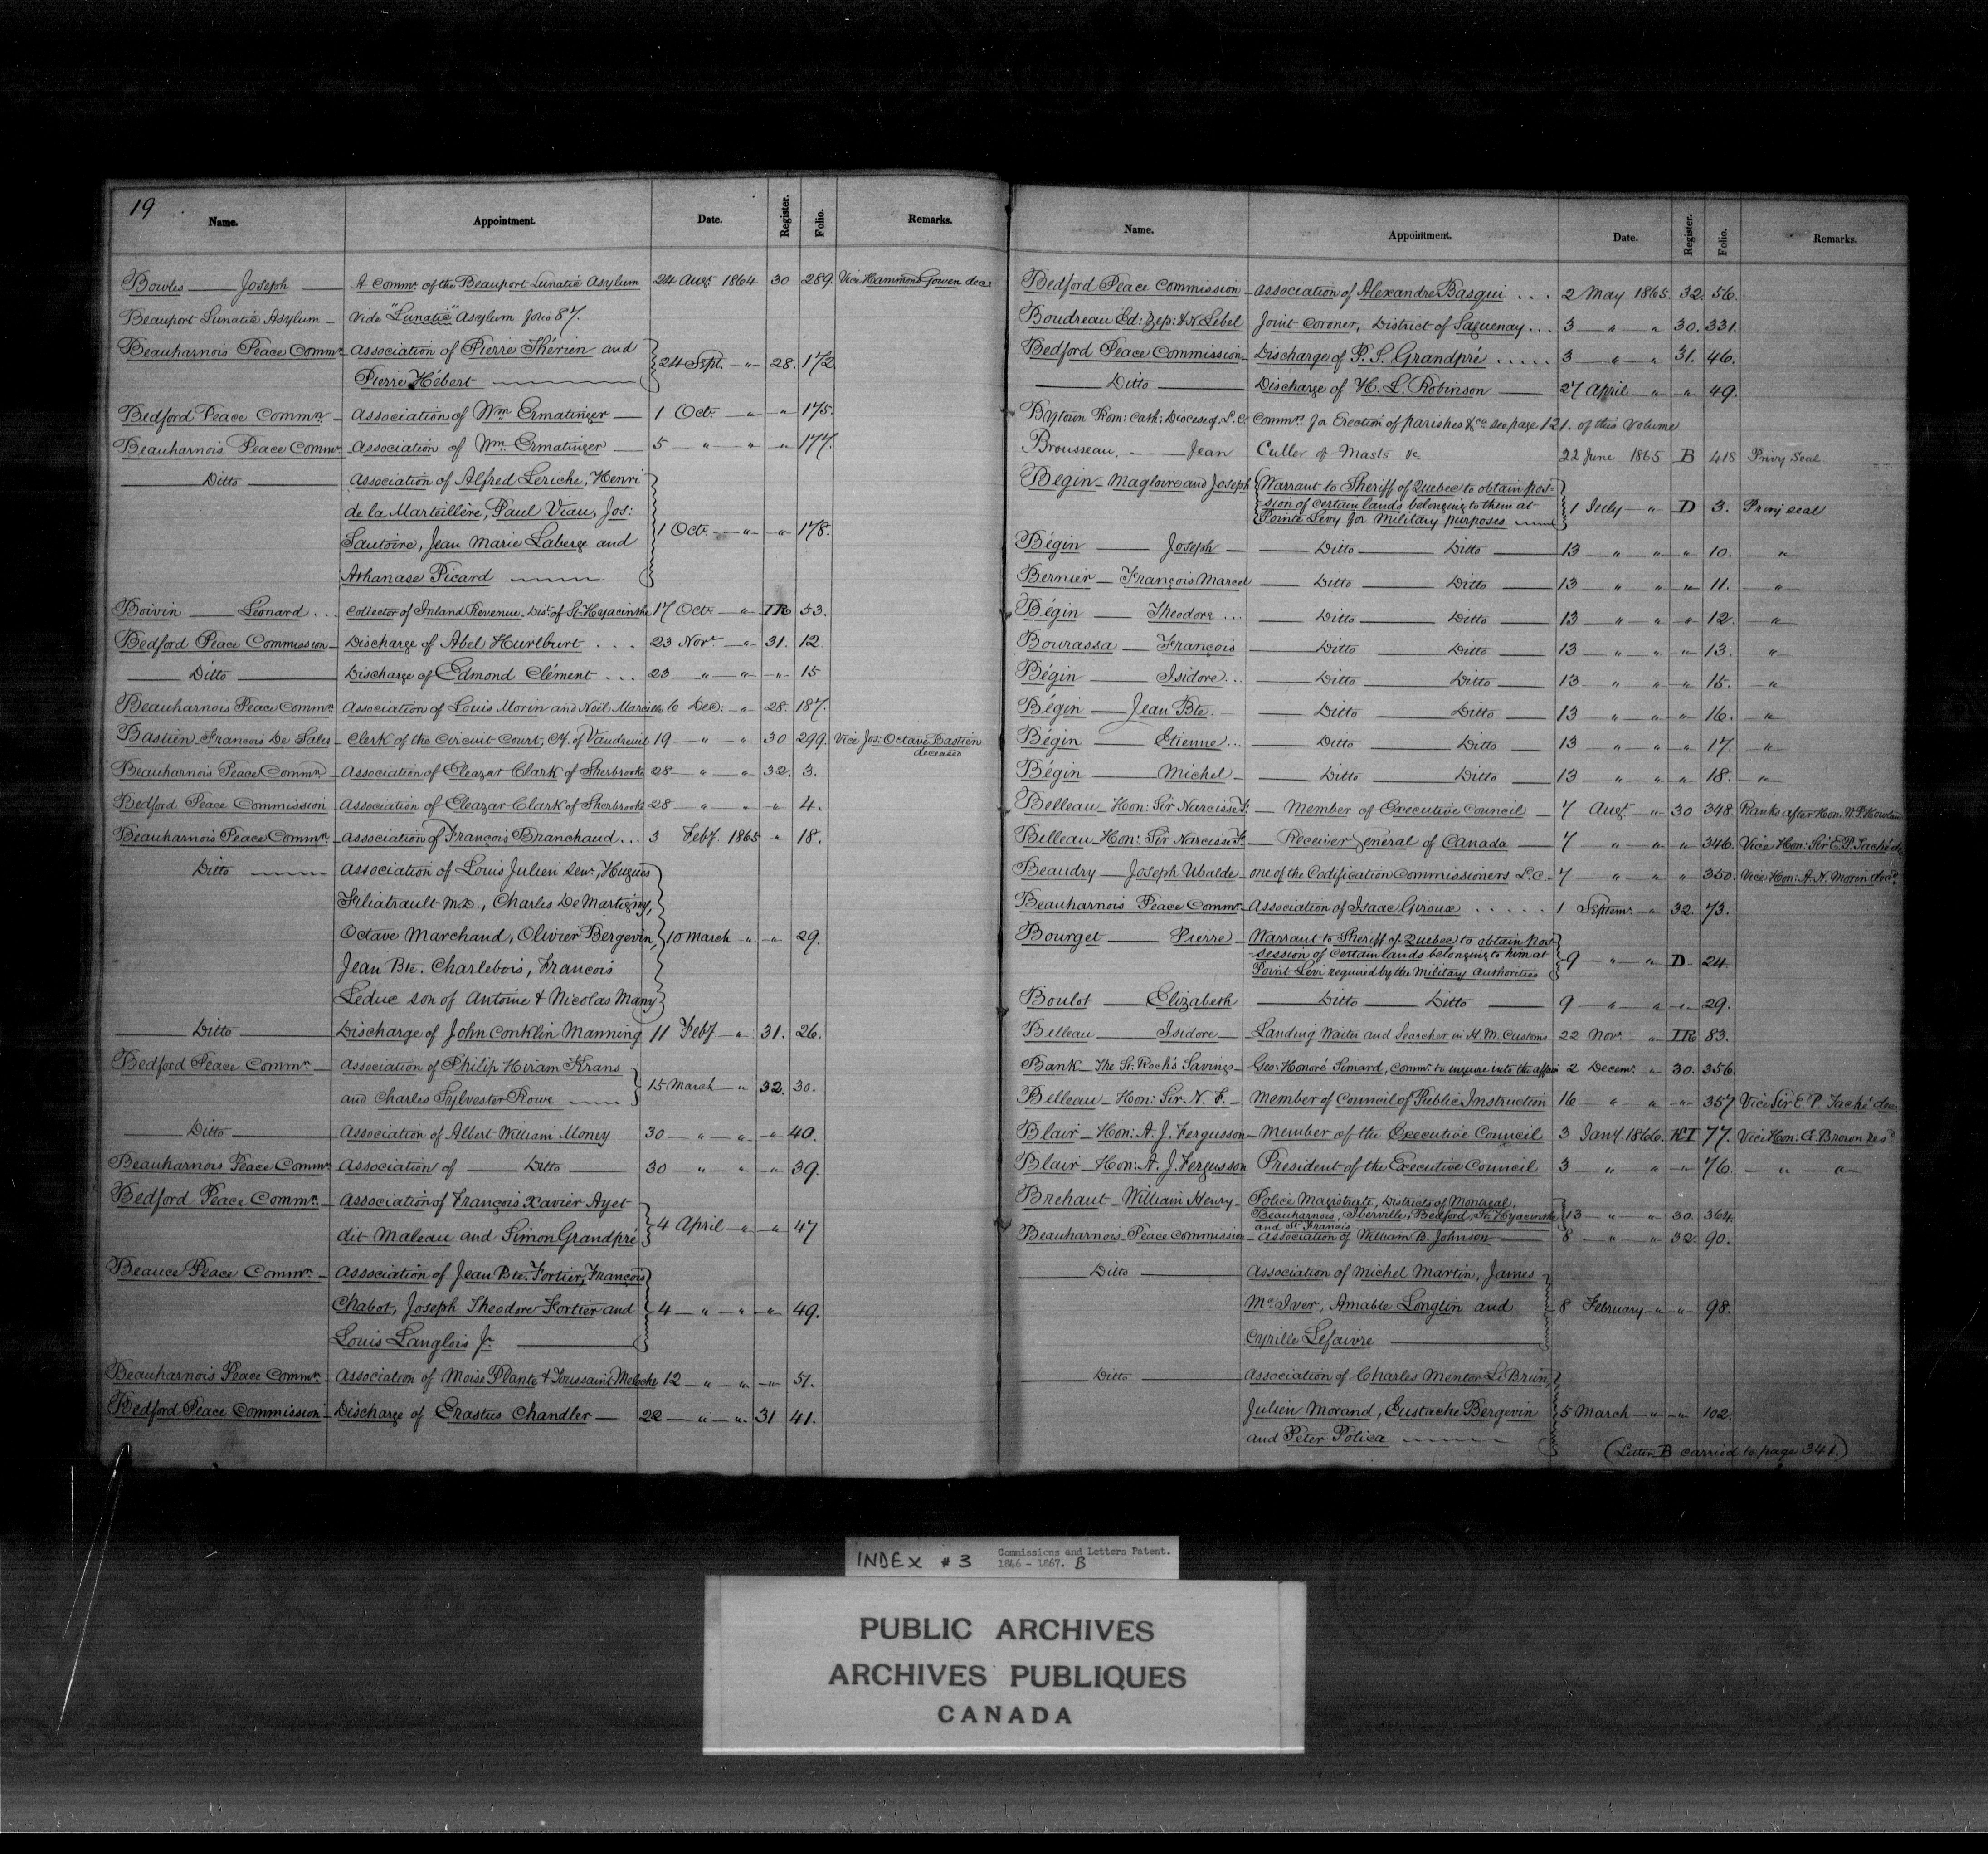 19
Name. Appointment. Date. Register. Folio. Remarks.
Bowles — Joseph — A Commr. of the Beauport Lunatic Asylum 24 Augt. 1864 30 289. Vice Hammond Gowen decd.
Beauport Lunatic Asylum — Vide "Lunatic" Asylum folio 87.
Beauharnois Peace Commn. — Association of Pierre Thérien and
Pierre Hébert — 24 Sept. — " — 28. 172.
Bedford Peace Commn. — Association of Wm. Ermatinger — 1 Oct. — " — " — 175.
Beauharnois Peace Commn. — Association of Wm. Ermatinger — 5 — " — " — " 177.
Ditto — Association of Alfred Leriche, Henri
de la Martellière, Paul Viau, Jos:
Sautoire, Jean Marie Laberge and 1 Oct. — " — " — 178.
Athanase Picard
Boivin — Léonard ... Collector of Inland Revenue Dist. of St. Hyacinthe 17 Oct. — " — IR 53.
Bedford Peace Commission — Discharge of Abel Hurlburt . . . 23 Novr. — " — 31. 12.
Ditto — Discharge of Edmond Clément . . . 23 — " — " — " — 15
Beauharnois Peace Commn. Association of Louis Morin and Noël Marcille 6 Dec. — " — 28. 187.
Bastien François De Sales — Clerk of the Circuit Court, Cy. of Vaudreuil 19 — " — " 30 299. Vice Jos: Octave Bastien
deceased
Beauharnois Peace Commn. — Association of Eleazar Clark of Sherbrooke 28 — " — " 32. 3.
Bedford Peace Commission Association of Eleazar Clark of Sherbrooke 28 — " — " — " 4.
Beauharnois Peace Commn. — Association of François Branchaud . . . 3 Feby. 1865 — " 18.
Ditto — Association of Louis Julien Senr., Hugues
Filiatrault M.D., Charles De Martigny,
Octave Marchand, Olivier Bergevin, 10 March — " — " — 29.
Jean Bte. Charlebois, François
Leduc son of Antoine & Nicolas Many
Ditto — Discharge of John Conklin Manning 11 Feby. — " 31. 26.
Bedford Peace Commn. — Association of Philip Hiram Krans
and Charles Sylvester Rowe 15 March — " 32. 30.
Ditto — Association of Albert William Money 30 — " — " — " 40.
Beauharnois Peace Commn. Association of — Ditto — 30 — " — " — " 39.
Bedford Peace Commn. — Association of François Xavier Ayet
dit Maleau and Simon Grandpré 4 April — " — " 47
Beauce Peace Commn. — Association of Jean Bte. Fortier, François
Chabot, Joseph Theodore Fortier and 4 — " — " — " 49.
Louis Langlois Jr.
Beauharnois Peace Commn. — Association of Moise Plante & Toussaint Meloche 12 — " — " — " 51.
Bedford Peace Commission — Discharge of Erastus Chandler — 22 — " — " 31 41.
Name. Appointment. Date. Register. Folio. Remarks.
Bedford Peace Commission — Association of Alexandre Basqui . . . 2 May 1865. 32. 56.
Boudreau Ed: Zep: & N. Lebel Joint Coroner, District of Saguenay . . . 3 — " — " 30. 331.
Bedford Peace Commission — Discharge of P. S. Grandpré . . . . . 3 — " — " 31. 46.
Ditto — Discharge of H. L. Robinson — 27 April — " — " — 49.
Bytown Rom: Cath: Diocese of L.C. Commrs. for Erection of parishes &ca. see page 121. of this volume
Brousseau, — Jean Culler of Masts &c 22 June 1865 B 418 Privy Seal
Bégin — Magloire and Joseph Warrant to Sheriff of Quebec to obtain pos-
session of certain lands belonging to them at 1 July — " — D 3. Privy seal
Pointe Levy for Military purposes
Bégin — Joseph — Ditto — Ditto — 13 — " — " — " 10. — "
Bernier — François Marcel — Ditto — Ditto — 13 — " — " — " 11. — "
Bégin — Theodore ... — Ditto — Ditto — 13 — " — " — " 12. — "
Bourassa — François — Ditto — Ditto — 13 — " — " — " 13. — "
Bégin — Isidore ... — Ditto — Ditto — 13 — " — " — " 15. — "
Bégin — Jean Bte. — Ditto — Ditto — 13 — " — " — " 16. — "
Bégin — Etienne ... — Ditto — Ditto — 13 — " — " — " 17. — "
Bégin — Michel — Ditto — Ditto — 13 — " — " — " 18. — "
Belleau — Hon: Sir Narcisse F. — Member of Executive Council — 7 Augt. — " 30 348. Ranks after Hon: W. P. Howland
Belleau — Hon: Sir Narcisse F. — Receiver General of Canada — 7 — " — " — " 346. Vice Hon: Sir E. P. Taché de
Beaudry — Joseph Ubalde — one of the Codification Commissioners L.C. — 7 — " — " — " 350. Vice Hon: A. N. Morin decd.
Beauharnois Peace Commn. — Association of Isaac Giroux . . . . . 1 Septemr. — " 32. 73.
Bourget — Pierre — Warrant to Sheriff of Quebec to obtain pos-
session of Certain lands belonging to him at 9 — " — " D. 24.
Point Levi required by the Military Authorities
Boulot — Elizabeth — Ditto — Ditto — 9 — " — " — " 29.
Belleau — Isidore — Landing Waiter and Searcher in H. M. Customs 22 Novr. — " IR 83.
Bank — The St. Roch's Savings — Geo: Honoré Simard, Commr. to inquire into the affairs 2 Decemr. — " 30. 356.
Belleau — Hon: Sir N. F. — Member of Council of Public Instruction 16 — " — " — " 357 Vice Sir E. P. Taché dec.
Blair — Hon: A. J. Fergusson — Member of the Executive Council 3 Jany. 1866. KI 77. Vice Hon: G. Brown resd.
Blair — Hon: A. J. Fergusson President of the Executive Council 3 — " — " — " 76. — " — "
Brehaut — William Henry — Police Magistrate, Districts of Montreal,
Beauharnois, Iberville, Bedford, St. Hyacinthe 13 — " — " 30. 364.
and St. Francis
Beauharnois Peace Commission — Association of William B. Johnson — 8 — " — " 32. 90.
Ditto — Association of Michel Martin, James
McIver, Amable Longtin and 8 February — " — " 98.
Cyrille Lefaivre
Ditto — Association of Charles Mentor LeBrun,
Julien Morand, Eustache Bergevin 5 March — " — " 102.
and Peter Polica
(Letter B carried to page 341.)
INDEX # 3 Commissions and Letters Patent.
1846 - 1867. B
PUBLIC ARCHIVES
ARCHIVES PUBLIQUES
CANADA